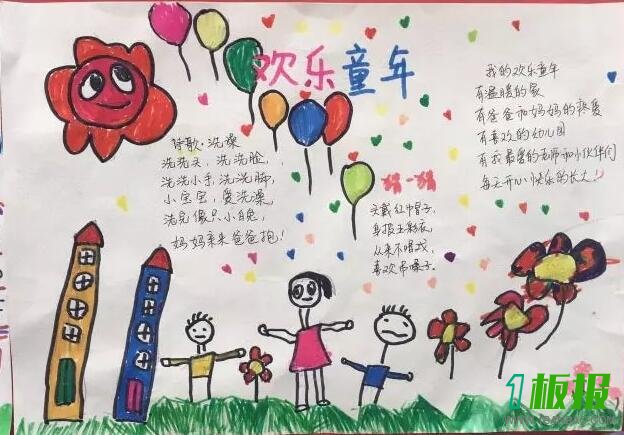 欢乐童年
诗歌·洗澡
洗洗头,洗洗脸,
洗洗小手,洗洗脚,
小宝宝,爱洗澡,
洗完像只小白兔,
妈妈亲来爸爸抱!
猜一猜
头戴红帽子,
身披五彩衣,
从来不唱戏,
喜欢吊嗓子.
我的欢乐童年
有温暖的家
有爸爸和妈妈的爱
有喜欢的幼儿园
有我最爱的老师和小伙伴们
每天开心快乐的长大!
1板报